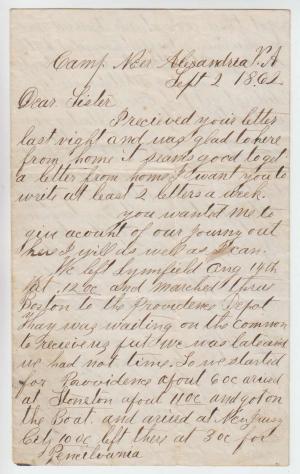 Camp Neir Alexandria V.A
Sept 2 1862
Dear Sister
I recived your letter
last night and was glad to here
from home it seams good to get
a letter from home I want you to
write at least 2 letters a week.
you wanted me to
give acount of our journy out
her I will do as well as I can.
We left Lynnfield Aug 19th
at 12 oc and marched thrue
Boston to the Providence Depot
thay was waiting on the Common
to receive us but we was late and
we had not time. So we started
for Providence about 6 oc arived
at Stoneton about 11 oc and got on
the Boat and arived at New Jersey
City 10 oc left there at 3 oc for
Pencilvania